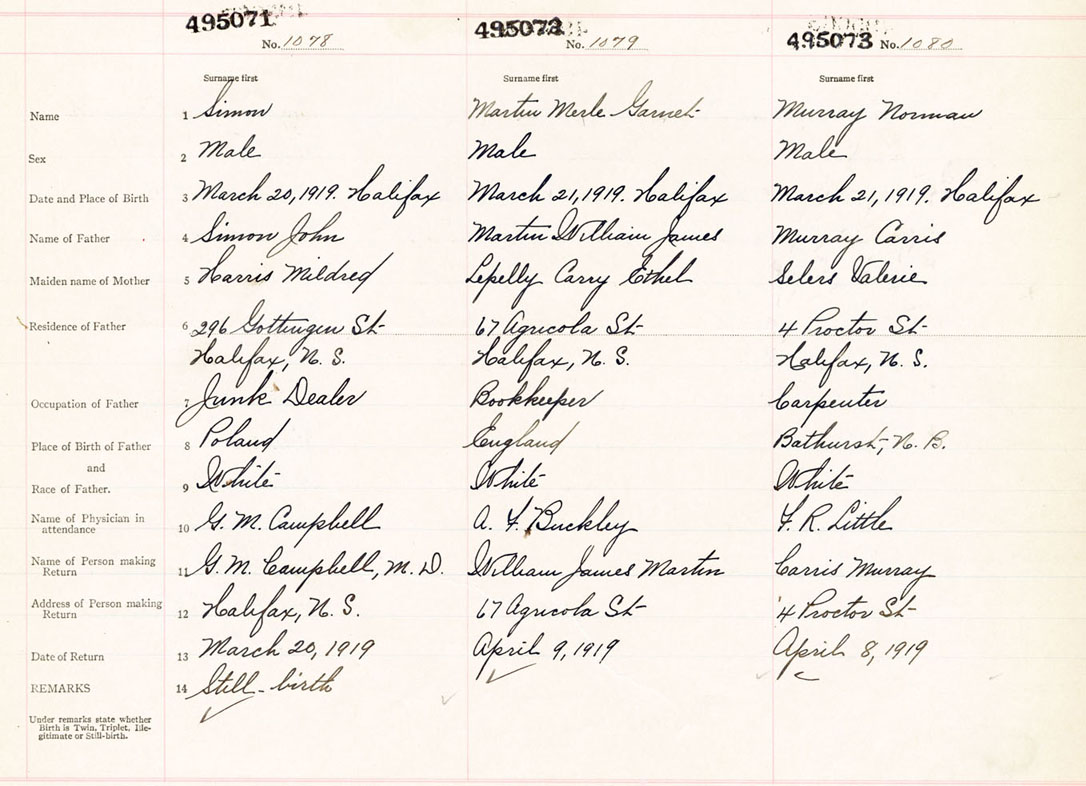 495071 No. 1078 495072 No. 1079 495073 No. 1080
Surname first Surname first Surname first
Name 1 Simon Martin Merle Garnet Murray Norman
Sex 2 Male Male Male
Date and Place of Birth 3 March 20, 1919. Halifax March 21, 1919. Halifax March 21, 1919. Halifax
Name of Father 4 Simon John Martin William James Murray Carris
Maiden name of Mother 5 Harris Mildred Lepelly Carry Ethel Selers Valerie
Residence of Father 6 296 Gottingen St 67 Agricola St 4 Proctor St
Halifax, N. S. Halifax, N. S. Halifax, N. S.
Occupation of Father 7 Junk Dealer Bookkeeper Carpenter
Place of Birth of Father 8 Poland England Bathurst, N. B.
and
Race of Father. 9 White White White
Name of Physician in
attendance 10 G. M. Campbell A. F. Buckley F. R. Little
Name of Person making
Return 11 G. M. Campbell, M. D. William James Martin Carris Murray
Address of Person making
Return 12 Halifax, N. S. 67 Agricola St 4 Proctor St
Date of Return 13 March 20, 1919 April 9, 1919 April 8, 1919
REMARKS 14 Still-birth
Under remarks state whether
Birth is Twin, Triplet, Ille-
gitimate or Still-birth.